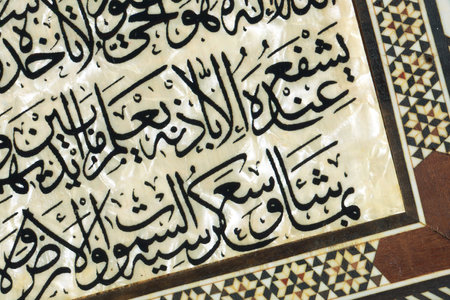 هو الحي القيوم لا تأخذه
يشفع عنده إلا بإذنه يعلم ما بين أيديهم و
بما شاء وسع كرسيه السموات والأرض و